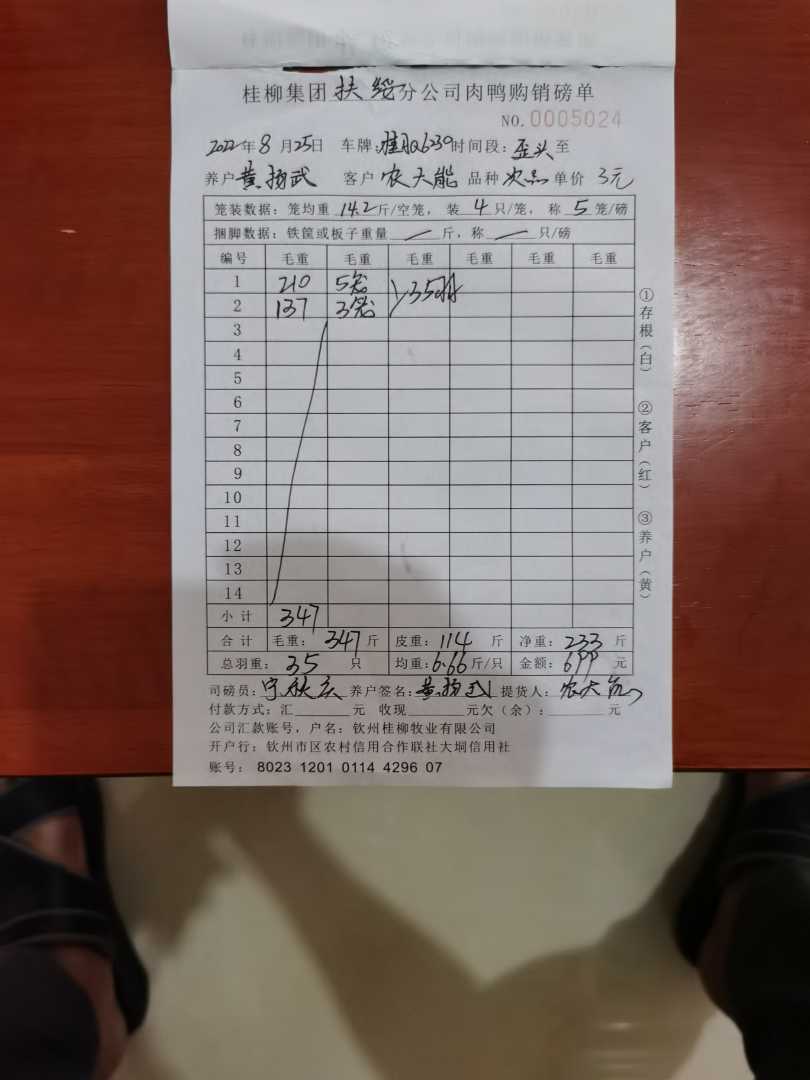 桂柳集团扶绥分公司肉鸭购销磅单
NO.0005024
2022年8月25日 车牌:桂 6230时间段:歪头至
养户黄扬武 客户农大能 品种次品单价3元
笼装数据:笼均重14.2斤/空笼,装4只/笼,称5笼/磅
捆脚数据:铁筐或板子重量/斤,称/只/磅
编号 毛重 毛重 毛重 毛重 毛重 毛重
1 210 5笼 35羽
2 137 3笼
3
4
5
6
7
8
9
10
11
12
13
14
小计 347
合计 毛重:347斤 皮重:114斤 净重:233斤
总羽重:35只 均重:6.66斤/只 金额:699元
司磅员:宁秋 养户签名:黄扬武 提货人:农大能
付款方式:汇____元 收现____元欠(余):____元
公司汇款账号,户名:钦州桂柳牧业有限公司
开户行:钦州市区农村信用合作联社大垌信用社
账号:8023 1201 0114 4296 07
①存根(白)
②客户(红)
③养户(黄)